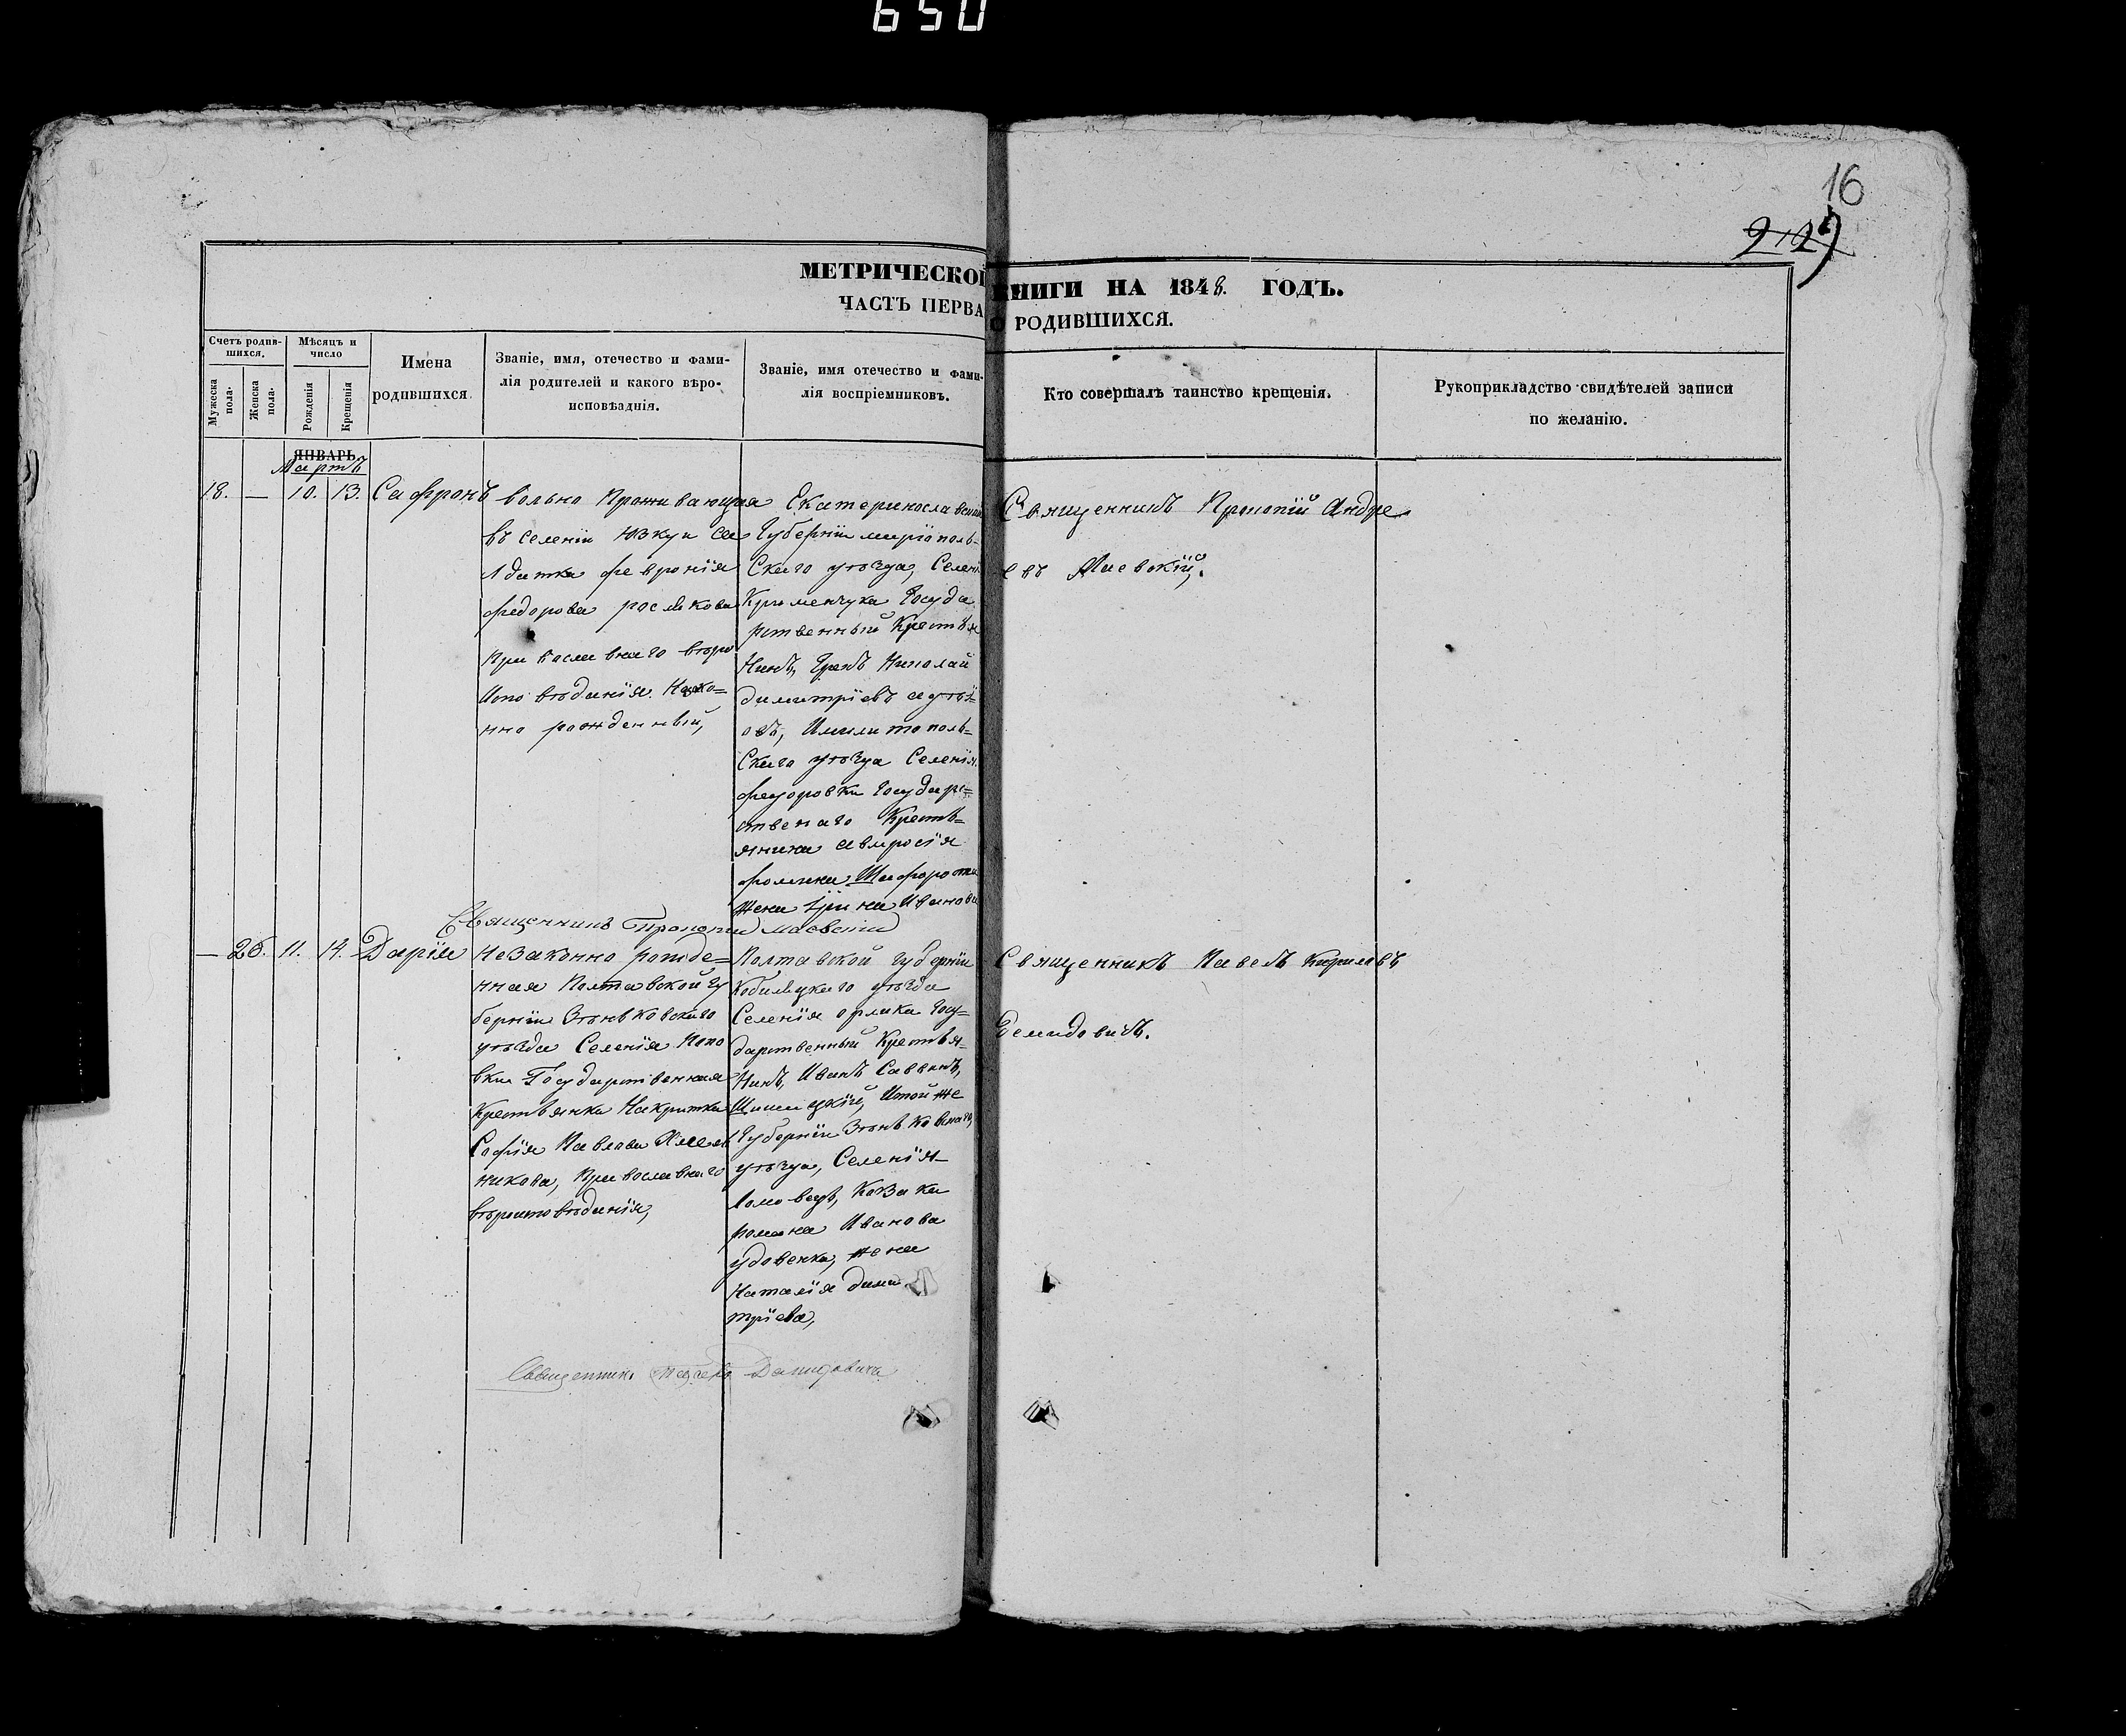 650
16
МЕТРИЧЕСКОЙ КНИГИ НА 1848. ГОДЪ.
ЧАСТЬ ПЕРВА О РОДИВШИХСЯ.
Счетъ родив-
шихся.
Мужеска пола.
Женска пола.
Мѣсяцъ и
число
Рожденія
Крещенія
Имена
родившихся.
Званіе, имя, отечество и фами-
лія родителей и какого вѣро-
исповѣданія.
Званіе, имя отечество и фами-
лія воспріемниковъ.
Кто совершалъ таинство крещенія.
Рукоприкладство свидѣтелей записи
по желанію.
ЯНВАРЬ.
Мартъ
18. — 10. 13. Сафронъ
вольно Проживающая
въ селеніи Юзкуи Са
лдатка Февронія
Федорова
Православнаго вѣро
испо вѣданія. Незако=
нно рожденный,
Екатеринославской
Губерніи маріополь=
Скаго уѣзда, Селені
Кременчука Госуда
рственный Крестья
Нинъ, Грекъ Николай
димитріевъ
овъ, Имелитополь=
Скаго уѣзда Селенія
Федоровки Государ=
ственаго Крестья=
янина Амвросія
Фомина
Жена Ірина Иванова
Священникъ Прокопій Андре
евъ Маевскій,
Священникъ Прокопій Маевскій
— 26. 11. 14. Дарія
Незаконно рожде=
нная Полтавской Гу
берніи Зѣньковскаго
уѣзда Селенія Попо
вки Государственная
Крестьянка Накритка
Софія Павлова
никова, Православнаго
вѣроисповѣданія,
Полтавской Губерніи
Кобиляцкаго уѣзда
Селенія Орлика Госу=
дарственный Крестья=
Нинъ, Иванъ Саввинъ,
Шишацкій, Итой же
Губерніи Зѣньковскаго
уѣзда, Селенія
Ломовецъ, Козака
романа Иванова
удовенка, жена
Наталія дими
тріева,
Священникъ Павелъ Кириловъ
Демидовичъ.
Священникъ Павелъ Демидовичъ